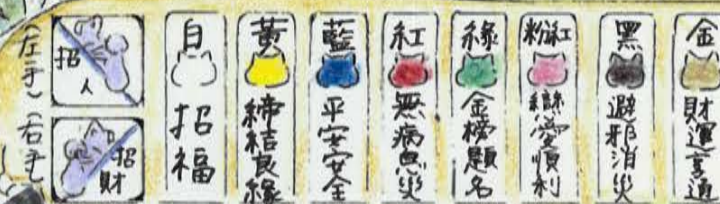 (左手)
招人
(右手)
招財
白
招福
黃
締結良緣
藍
平安安全
紅
無病息災
綠
金榜題名
粉紅
戀愛順利
黑
避邪消災
金
財運亨通